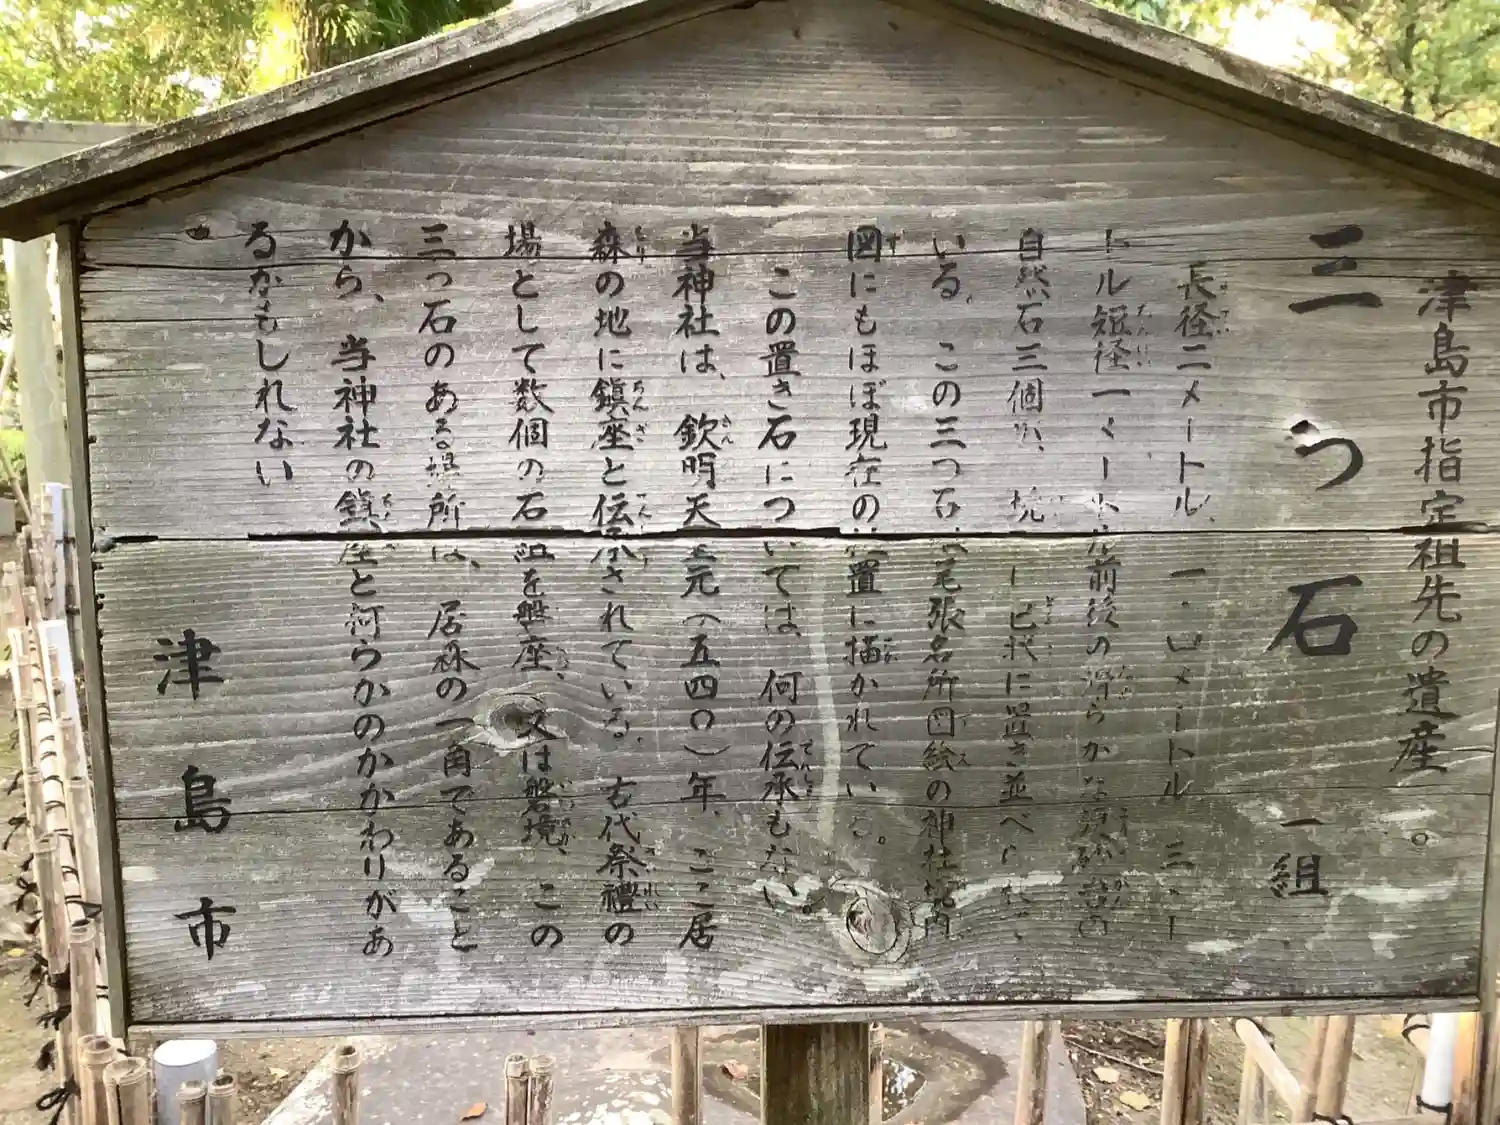 津島市指定祖先の遺産。
三つ石 一組
長径二メートル、一・ロメートル、三メー
トル短径一メートル前後の滑らかな硬砂岩の
自然石三個が、境 に置き並べられて
いる。この三つ石 尾張名所図絵の神社境内
図にもほぼ現在の位置に描かれている。
この置き石については、何の伝承もない。
当神社は、欽明天皇元(五四〇)年、ここ居
森の地に鎮座と伝承されている。古代祭禮の
場として数個の石組を磐座、又は磐境、この
三つ石のある場所は、居森の一角であること
から、当神社の鎮座と何らかのかかわりがあ
るかもしれない
津島市